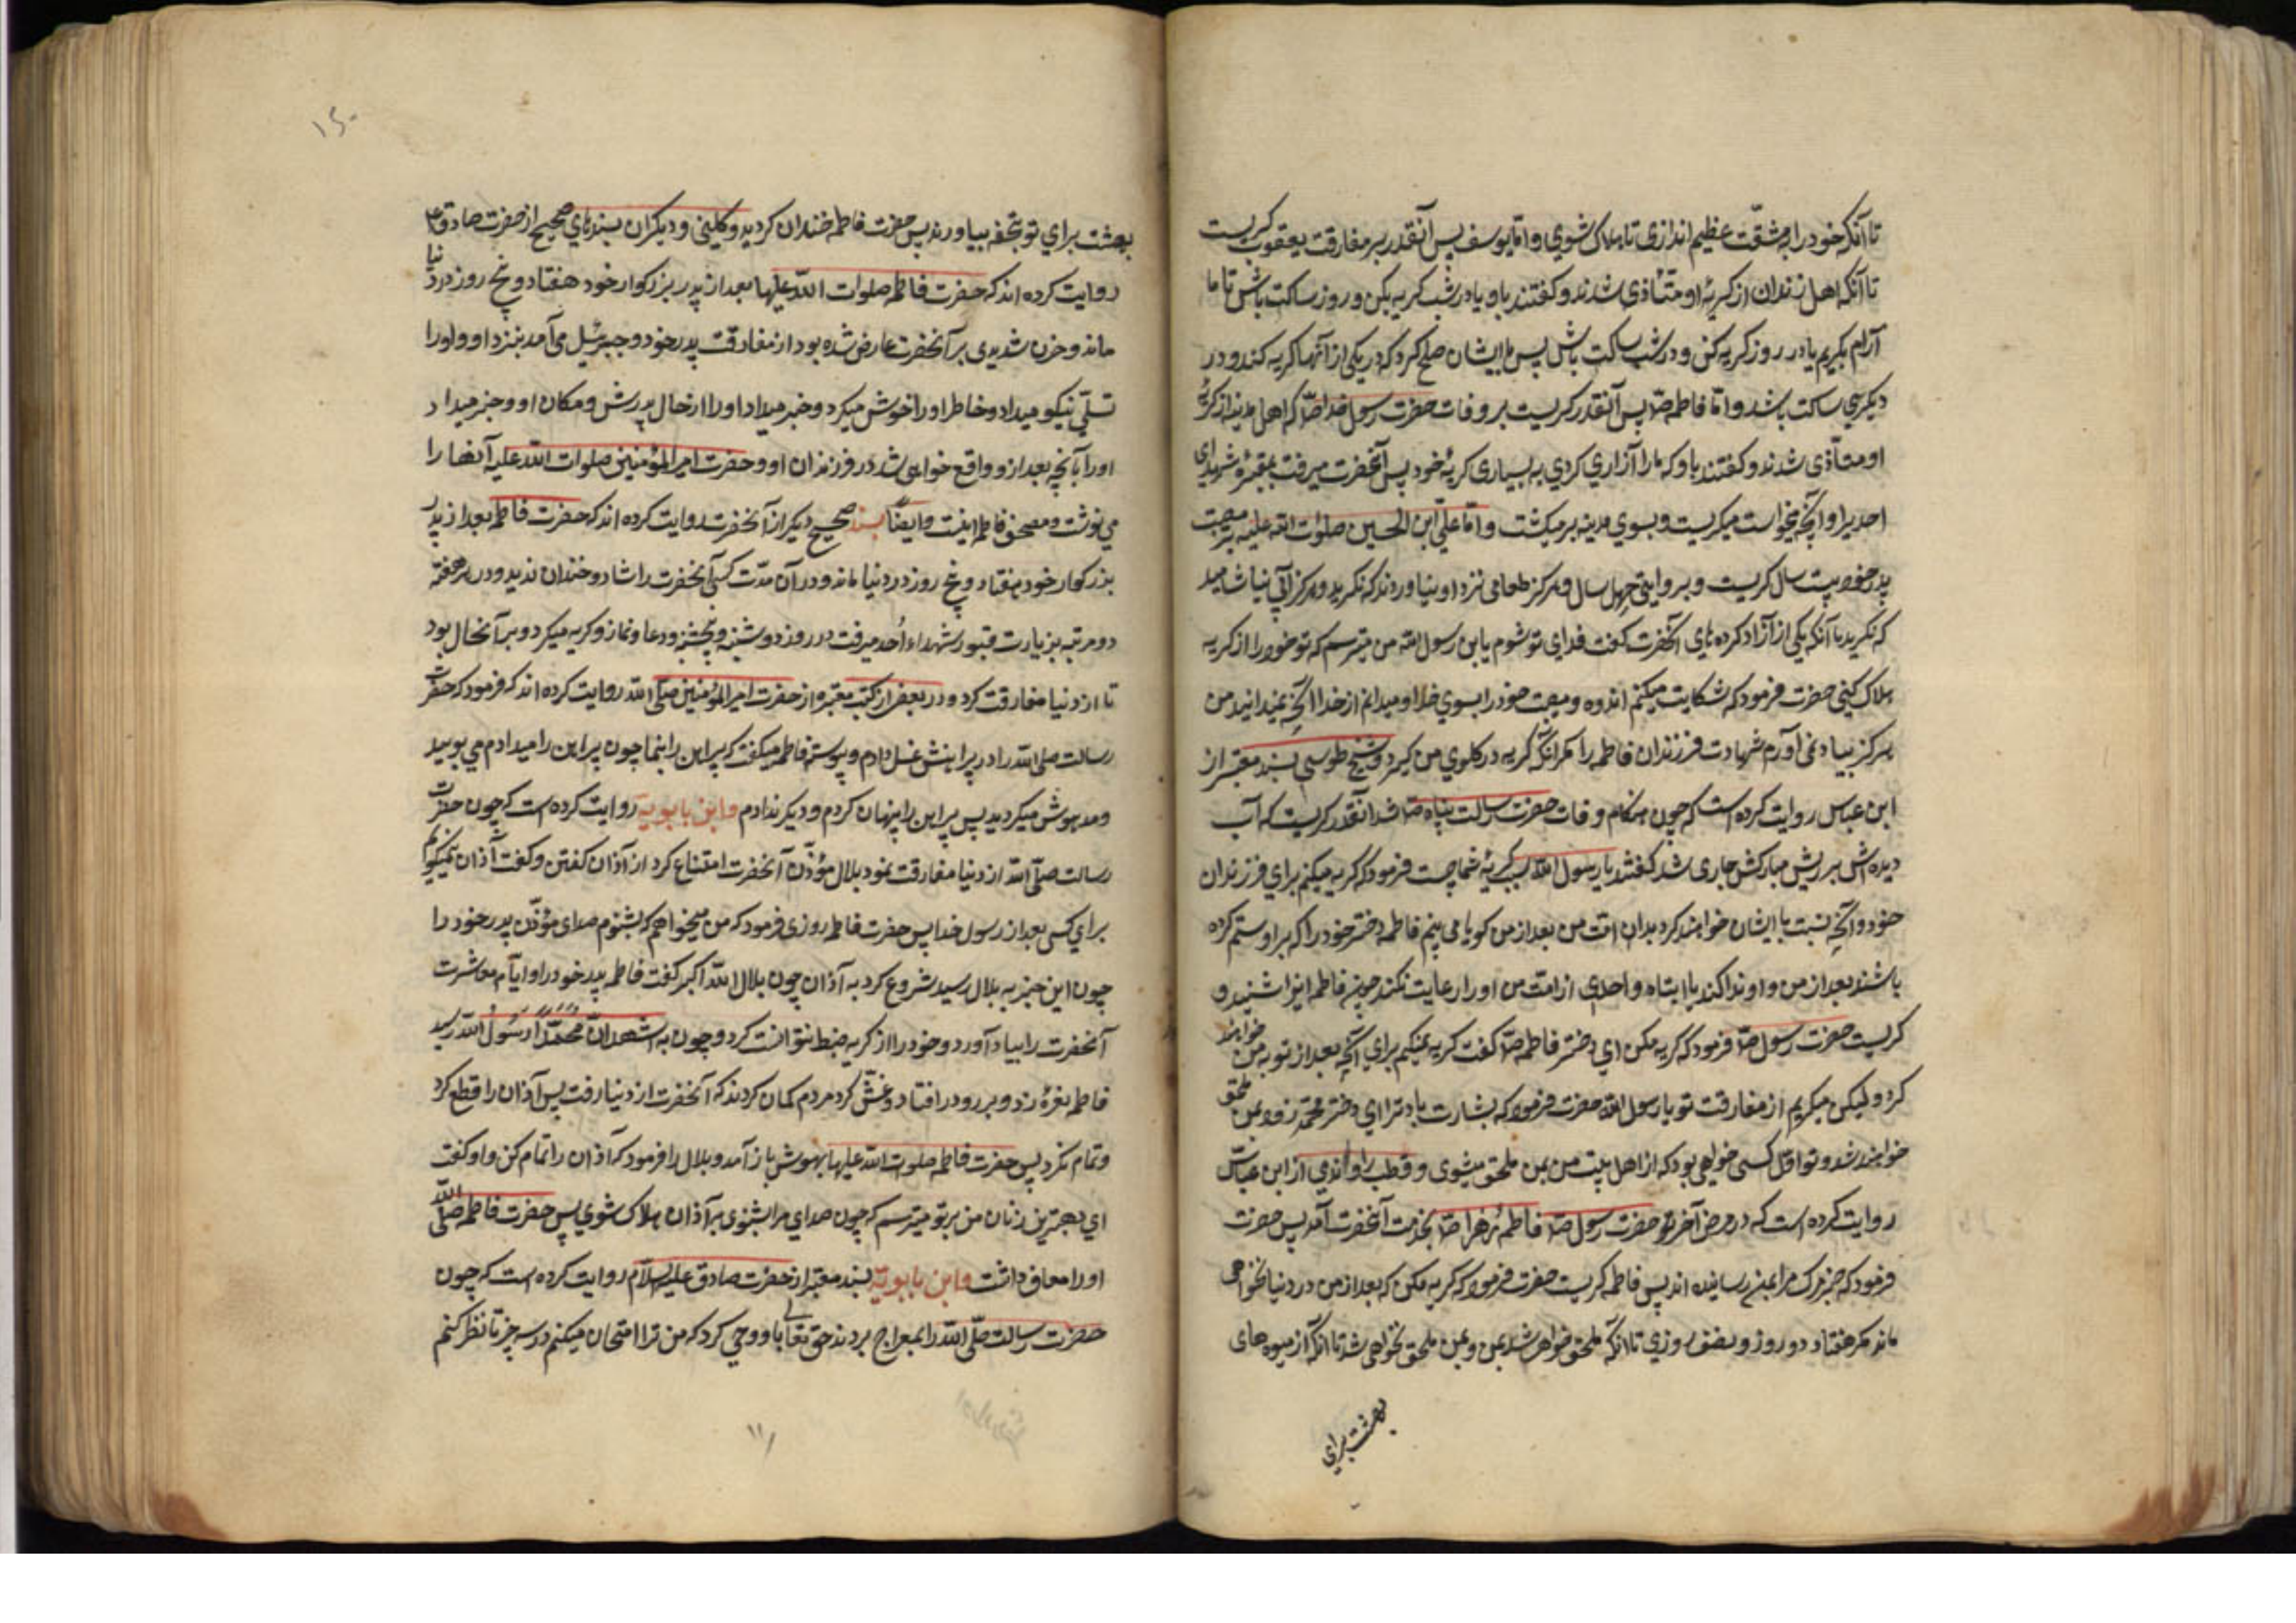 تا آنکه خود را بمشقّت عظیم اندازی تا هلاک شوی و امّا یوسف پس آنقدر بر مفارقت یعقوب کریست
تا آنکه اهل زندان از کریهٔ او متاذی شدند و کفتند باو یا در شب کریه بکن و روز ساکت باش تا ما
آرام بکیریم یا در روز کریه کن و در شب ساکت باش پس با ایشان صلح کرد که در یکی از آنها کریه کند و در
دیکری ساکت باشد و امّا فاطمه صلا پس آنقدر کریست بر وفات حضرت رسول خدا صلا که اهل مدینه از کریهٔ
او متأذی شدند و کفتند باو که ما را آزاری کردی به بسیاری کریهٔ خود پس آنحضرت میرفت بمقبرهٔ شهدای
احد پس او آنچه میخواست میکریست و بسوی مدینه برمیکشت و امّا علی ابن الحسین صلوات الله علیه بر مصیبت
پدر خود بیست سال کریست و بروایتی چهل سال و هرکز طعامی نزد او نیاوردند که نکرید و هرکز آبی نیاشامید
که نکرید تا آنکه یکی از آزاد کرده های آنحضرت کفت فدای تو شوم یابن رسول الله من میترسم که تو خود را از کریه
هلاک کنی حضرت فرمود که شکایت میکنم اندوه و مصیبت خود را بسوی خدا و میدانم از خدا آنچه نمیدانید من
هرکز بیاد نمی آورم شهادت فرزندان فاطمه را مکر آنکه کریه در کلوی من کیرد و شیخ طوسی بسند معتبر از
ابن عباس روایت کرده است که چون هنکام وفات حضرت رسالت پناه صلا شد آنقدر کریست که آب
دیده اش بر ریش مبارکش جاری شد کفتند یا رسول الله سبب کریهٔ شما چیست فرمود که کریه میکنم برای فرزندان
خود و آنچه نسبت با ایشان خواهند کرد بدان امّت من بعد از من کویا می بینم فاطمه دختر خود را که بر او ستم کرده
باشند بعد از من و او ندا کند یا ابتاه و احدی از امّت من او را رعایت نکند چون فاطمه اینرا شنید و
کریست حضرت رسول صلا فرمود که کریه مکن ای دختر فاطمه صلا کفت کریه نمیکنم برای آنچه بعد از تو به من خواهند
کرد و لیکن میکریم از مفارقت تو یا رسول الله حضرت فرمود که بشارت باد ترا ای دختر محمّد زود بمن ملحق
خواهند شد و تو اوّل کسی خواهی بود که از اهل بیت من بمن ملحق میشوی و قطب راوندی از ابن عباس
روایت کرده است که در مرض آخر حضرت رسول صلا فاطمهٔ زهرا صلا بخدمت آنحضرت آمد پس حضرت
فرمود که خبر مرک مرا بمن رسانیده اند پس فاطمه کریست حضرت فرمود که کریه مکن که بعد از من در دنیا نخواهی
ماند مکر هفتاد و دو روز و نصف روزی تا آنکه ملحق خواهی شد بمن و بمن ملحق نخواهی شد تا آنکه از میوه های
بهشت برای
۱۵۰
بهشت برای تو بتحفه بیاورند پس حضرت فاطمه خندان کردید و کلینی و دیکران بسندهای صحیح از حضرت صادق ع
روایت کرده اند که حضرت فاطمه صلوات الله علیها بعد از پدر بزرکوار خود هفتاد و پنج روز در دنیا
ماند و حزن شدیدی بر آنحضرت عارض شده بود از مفارقت پدر خود و جبرئیل می آمد بنزد او و او را
تسلّی نیکو میداد و خاطر او را خوش میکرد و خبر میداد او را از حال پدرش و مکان او و خبر میداد
او را بآنچه بعد از او واقع خواهی شد در فرزندان او و حضرت امیر المؤمنین صلوات الله علیه آنها را
می نوشت و مصحف فاطمه اینست و ایضًا بسند صحیح دیکر از آنحضرت روایت کرده اند که حضرت فاطمه بعد از پدر
بزرکوار خود هفتاد و پنج روز در دنیا ماند و در آن مدّت کسی آنحضرت را شاد و خندان ندید و در هر هفته
دو مرتبه بزیارت قبور شهداء اُحد میرفت در روز دوشنبه و پنجشنبه و دعا و نماز و کریه میکرد و بر آنحال بود
تا از دنیا مفارقت کرد و در بعض از کتب معتبره از حضرت امیر المؤمنین صلّی الله روایت کرده اند که فرمود که حضرت
رسالت صلی الله را در پیراهنش غسل دادم و پیوسته فاطمه میکفت که پیراهن را بنما چون پیراهن را میدادم می بویید
و مدهوش میکردید پس پیراهن را پنهان کردم و دیکر ندادم و ابن بابویه روایت کرده است که چون حضرت
رسالت صلّی الله از دنیا مفارقت نمود بلال مؤذّن آنحضرت امتناع کرد از آذان کفتن و کفت آذان نمیکویم
برای کسی بعد از رسول خدا پس حضرت فاطمه روزی فرمود که من میخواهم که بشنوم صدای مؤذّن پدر خود را
چون این خبر به بلال رسید شروع کرد به آذان چون بلال الله اکبر کفت فاطمه پدر خود را و ایّام معاشرت
آنحضرت را بیاد آورد و خود را از کریه ضبط نتوانست کرد و چون به اشهد انّ محمّدًا رسول الله رسید
فاطمه نعره زد و بر رو در افتاد و غش کرد مردم کمان کردند که آنحضرت از دنیا رفت پس آذان را قطع کرد
و تمام نکرد پس حضرت فاطمه صلوات الله علیها بهوش باز آمد و بلال را فرمود که آذان را تمام کن و او کفت
ای بهترین زنان من بر تو میترسم که چون صدای مرا بشنوی بآذان هلاک شوی پس حضرت فاطمه صلّی الله
او را معاف داشت و ابن بابویه بسند معتبر از حضرت صادق علیه السّلام روایت کرده است که چون
حضرت رسالت صلّی الله را بمعراج بردند حق تعالی باو وحی کرد که من ترا امتحان میکنم در سه چیز تا نظر کنم